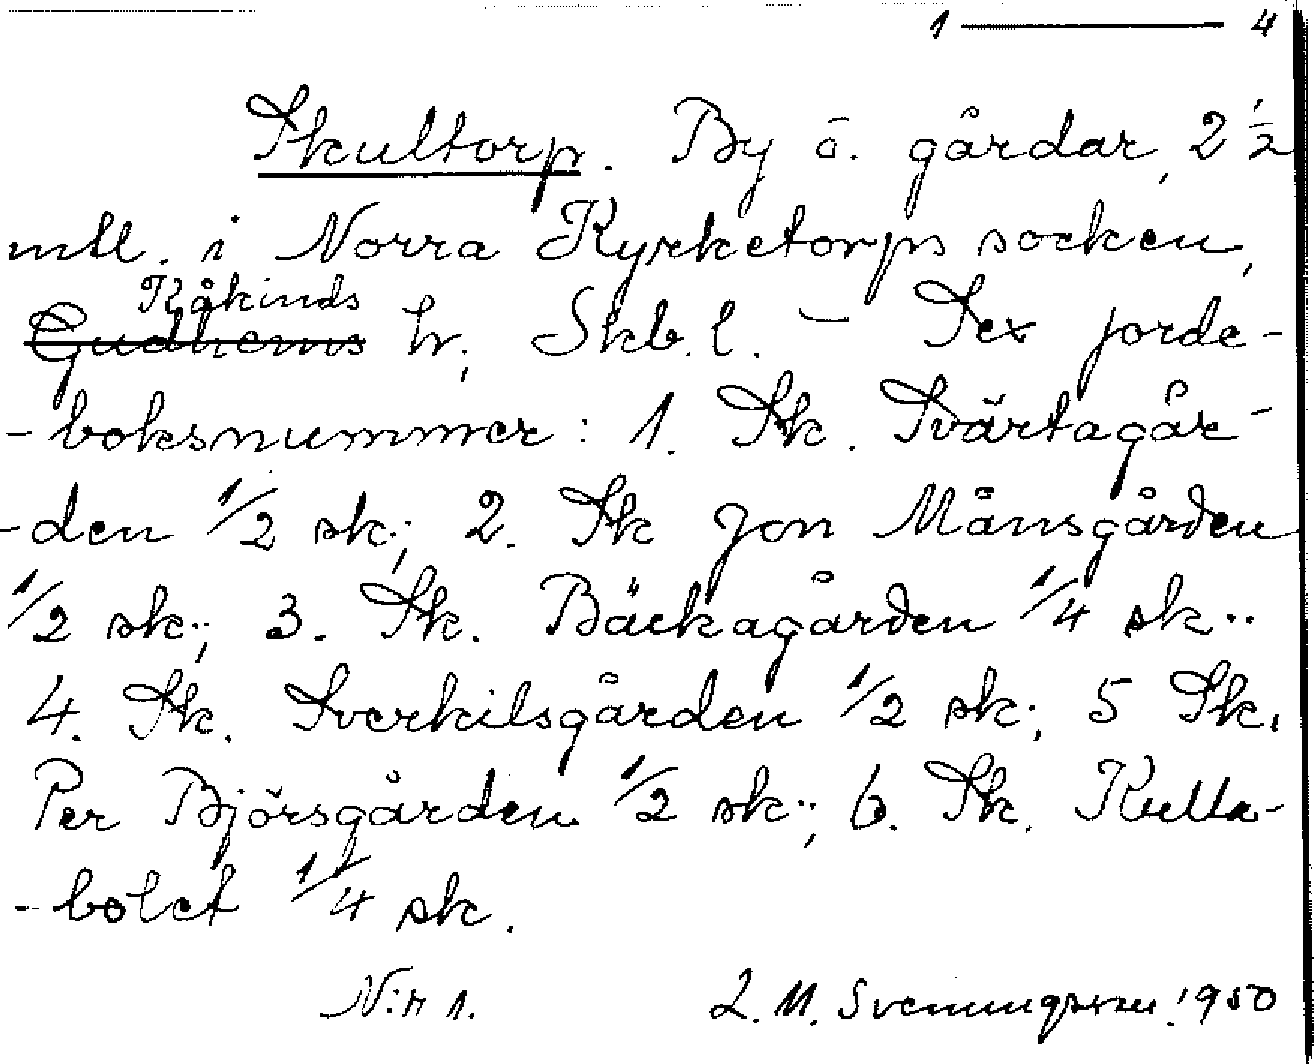 1 ——— 4
Skultorp. By o. gårdar, 2 1/2
mtl. i Norra Kyrketorps socken,
Kåkinds
Gudhems hr, Skb. l. – Sex jorde-
-boksnummer: 1. Sk. Svärtagår-
-den 1/2 sk.; 2. Sk Jon Månsgården
1/2 sk.; 3. Sk. Bäckagården 1/4 sk..
4. Sk. Sverkilsgården 1/2 sk.; 5 Sk.
Per Björsgården 1/2 sk.; 6. Sk. Kulla-
-bolet 1/4 sk.
N:r 1. L. M. Svenungsson. 1950